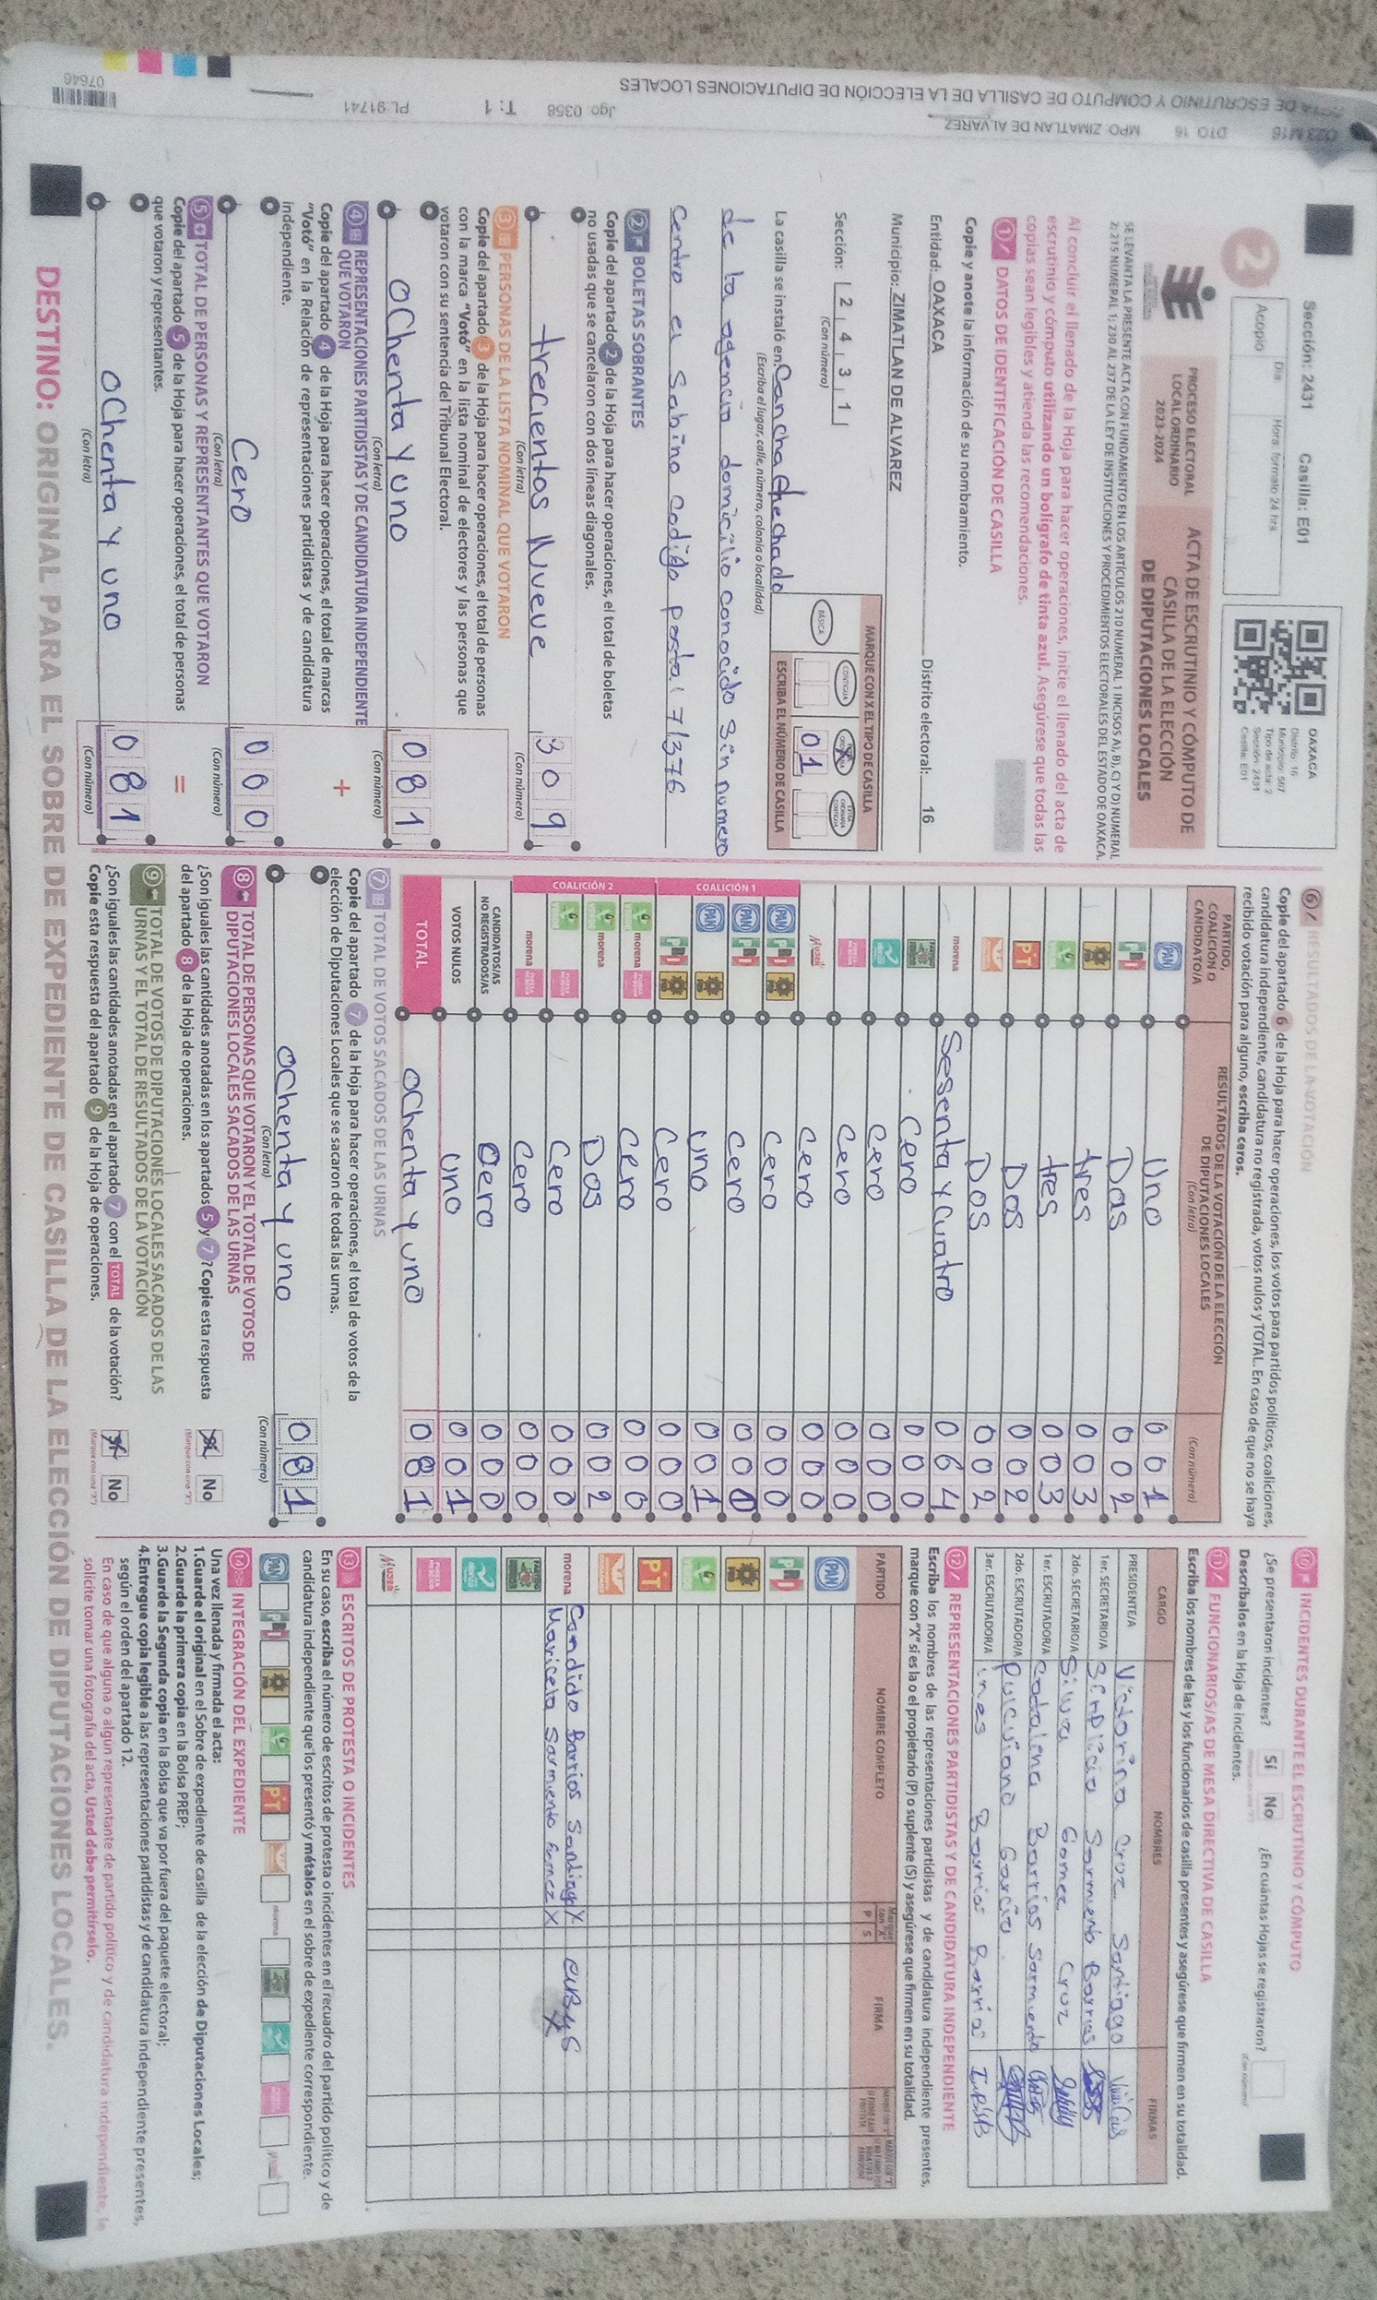 Sección: 2431 Casilla: E01
2
Día Hora: formato 24 hrs
Acopio
OAXACA
Distrito: 16
Municipio: 567
Tipo de acta: 2
Sección: 2431
Casilla: E01
PROCESO ELECTORAL
LOCAL ORDINARIO
2023-2024
ACTA DE ESCRUTINIO Y CÓMPUTO DE
CASILLA DE LA ELECCIÓN
DE DIPUTACIONES LOCALES
SE LEVANTA LA PRESENTE ACTA CON FUNDAMENTO EN LOS ARTÍCULOS 210 NUMERAL 1 INCISOS A), B), C) Y D) NUMERAL
2; 215 NUMERAL 1; 230 AL 237 DE LA LEY DE INSTITUCIONES Y PROCEDIMIENTOS ELECTORALES DEL ESTADO DE OAXACA.
Al concluir el llenado de la Hoja para hacer operaciones, inicie el llenado del acta de
escrutinio y cómputo utilizando un bolígrafo de tinta azul. Asegúrese que todas las
copias sean legibles y atienda las recomendaciones.
1 DATOS DE IDENTIFICACIÓN DE CASILLA
Copie y anote la información de su nombramiento.
Entidad: OAXACA Distrito electoral: 16
Municipio: ZIMATLAN DE ALVAREZ
Sección: 2 4 3 1
(Con número)
MARQUE CON X EL TIPO DE CASILLA
BÁSICA CONTIGUA
01
ESCRIBA EL NÚMERO DE CASILLA
La casilla se instaló en: Cancha techada
(Escriba el lugar, calle, número, colonia o localidad)
de la agencia domicilio conocido Sin numero
Centro el Sabino Codigo postal 71376
2 BOLETAS SOBRANTES
Copie del apartado 2 de la Hoja para hacer operaciones, el total de boletas
no usadas que se cancelaron con dos líneas diagonales.
trecientos Nueve 309
(Con letra) (Con número)
3 PERSONAS DE LA LISTA NOMINAL QUE VOTARON
Copie del apartado 3 de la Hoja para hacer operaciones, el total de personas
con la marca "Votó" en la lista nominal de electores y las personas que
votaron con su sentencia del Tribunal Electoral.
OChenta y uno 081
(Con letra) (Con número)
4 REPRESENTACIONES PARTIDISTAS Y DE CANDIDATURA INDEPENDIENTE
QUE VOTARON
Copie del apartado 4 de la Hoja para hacer operaciones, el total de marcas
"Votó" en la Relación de representaciones partidistas y de candidatura
independiente.
+
Cero 000
(Con letra) (Con número)
5 TOTAL DE PERSONAS Y REPRESENTANTES QUE VOTARON
Copie del apartado 5 de la Hoja para hacer operaciones, el total de personas
que votaron y representantes.
=
OChenta y uno 081
(Con letra) (Con número)
6 RESULTADOS DE LA VOTACIÓN
Copie del apartado 6 de la Hoja para hacer operaciones, los votos para partidos políticos, coaliciones,
candidatura independiente, candidatura no registrada, votos nulos y TOTAL. En caso de que no se haya
recibido votación para alguno, escriba ceros.
PARTIDO,
COALICIÓN O
CANDIDATO/A
RESULTADOS DE LA VOTACIÓN DE LA ELECCIÓN
DE DIPUTACIONES LOCALES
(Con letra) (Con número)
PAN Uno 001
PRI Dos 002
PRD tres 003
tres 003
PT Dos 002
Dos 002
morena Sesenta y Cuatro 064
Cero 000
Cero 000
Cero 000
Mujer Cero 000
COALICIÓN 1
PAN PRI PRD Cero 000
PAN PRI Cero 000
PAN PRD Uno 001
PRI PRD Cero 000
COALICIÓN 2
morena Cero 000
morena Dos 002
Cero 000
morena Cero 000
CANDIDATOS/AS
NO REGISTRADOS/AS Cero 000
VOTOS NULOS Uno 001
TOTAL OChenta y uno 081
7 TOTAL DE VOTOS SACADOS DE LAS URNAS
Copie del apartado 7 de la Hoja para hacer operaciones, el total de votos de la
elección de Diputaciones Locales que se sacaron de todas las urnas.
OChenta y uno 081
(Con letra) (Con número)
8 TOTAL DE PERSONAS QUE VOTARON Y EL TOTAL DE VOTOS DE
DIPUTACIONES LOCALES SACADOS DE LAS URNAS
¿Son iguales las cantidades anotadas en los apartados 5 y 7? Copie esta respuesta
del apartado 8 de la Hoja de operaciones.
Sí No
9 TOTAL DE VOTOS DE DIPUTACIONES LOCALES SACADOS DE LAS
URNAS Y EL TOTAL DE RESULTADOS DE LA VOTACIÓN
¿Son iguales las cantidades anotadas en el apartado 7 con el TOTAL de la votación?
Copie esta respuesta del apartado 9 de la Hoja de operaciones.
Sí No
10 INCIDENTES DURANTE EL ESCRUTINIO Y CÓMPUTO
¿Se presentaron incidentes? Sí No ¿En cuántas Hojas se registraron?
Descríbalos en la Hoja de incidentes.
11 FUNCIONARIOS/AS DE MESA DIRECTIVA DE CASILLA
Escriba los nombres de las y los funcionarios de casilla presentes y asegúrese que firmen en su totalidad.
CARGO NOMBRES FIRMAS
PRESIDENTE/A Victorina Cruz Santiago
1er. SECRETARIO/A Simplicia Sarmiento Barrios
2do. SECRETARIO/A Silvia Gomez Cruz
1er. ESCRUTADOR/A Catalina Barrios Sarmiento
2do. ESCRUTADOR/A Pulciviano Garcia
3er. ESCRUTADOR/A ines Barrios Barrios
12 REPRESENTACIONES PARTIDISTAS Y DE CANDIDATURA INDEPENDIENTE
Escriba los nombres de las representaciones partidistas y de candidatura independiente presentes,
marque con "X" si es la o el propietario (P) o suplente (S) y asegúrese que firmen en su totalidad.
PARTIDO NOMBRE COMPLETO P S FIRMA
PAN
PRI
PRD
PT
morena Candido Barrios Santiago X
Maricela Sarmiento Gomez X X
Mujer
13 ESCRITOS DE PROTESTA O INCIDENTES
En su caso, escriba el número de escritos de protesta o incidentes en el recuadro del partido político y de
candidatura independiente que los presentó y métalos en el sobre de expediente correspondiente.
14 INTEGRACIÓN DEL EXPEDIENTE
Una vez llenada y firmada el acta:
1.Guarde el original en el Sobre de expediente de casilla de la elección de Diputaciones Locales;
2.Guarde la primera copia en la Bolsa PREP;
3.Guarde la Segunda copia en la Bolsa que va por fuera del paquete electoral;
4.Entregue copia legible a las representaciones partidistas y de candidatura independiente presentes,
según el orden del apartado 12.
En caso de que alguna o algún representante de partido político y de candidatura independiente, le
solicite tomar una fotografía del acta, Usted debe permitírselo.
DESTINO: ORIGINAL PARA EL SOBRE DE EXPEDIENTE DE CASILLA DE LA ELECCIÓN DE DIPUTACIONES LOCALES.
DTO 16 MPO: ZIMATLAN DE ALVAREZ
ACTA DE ESCRUTINIO Y CÓMPUTO DE CASILLA DE LA ELECCIÓN DE DIPUTACIONES LOCALES
Jgo: 0358 T: 1 PL:91741
07646